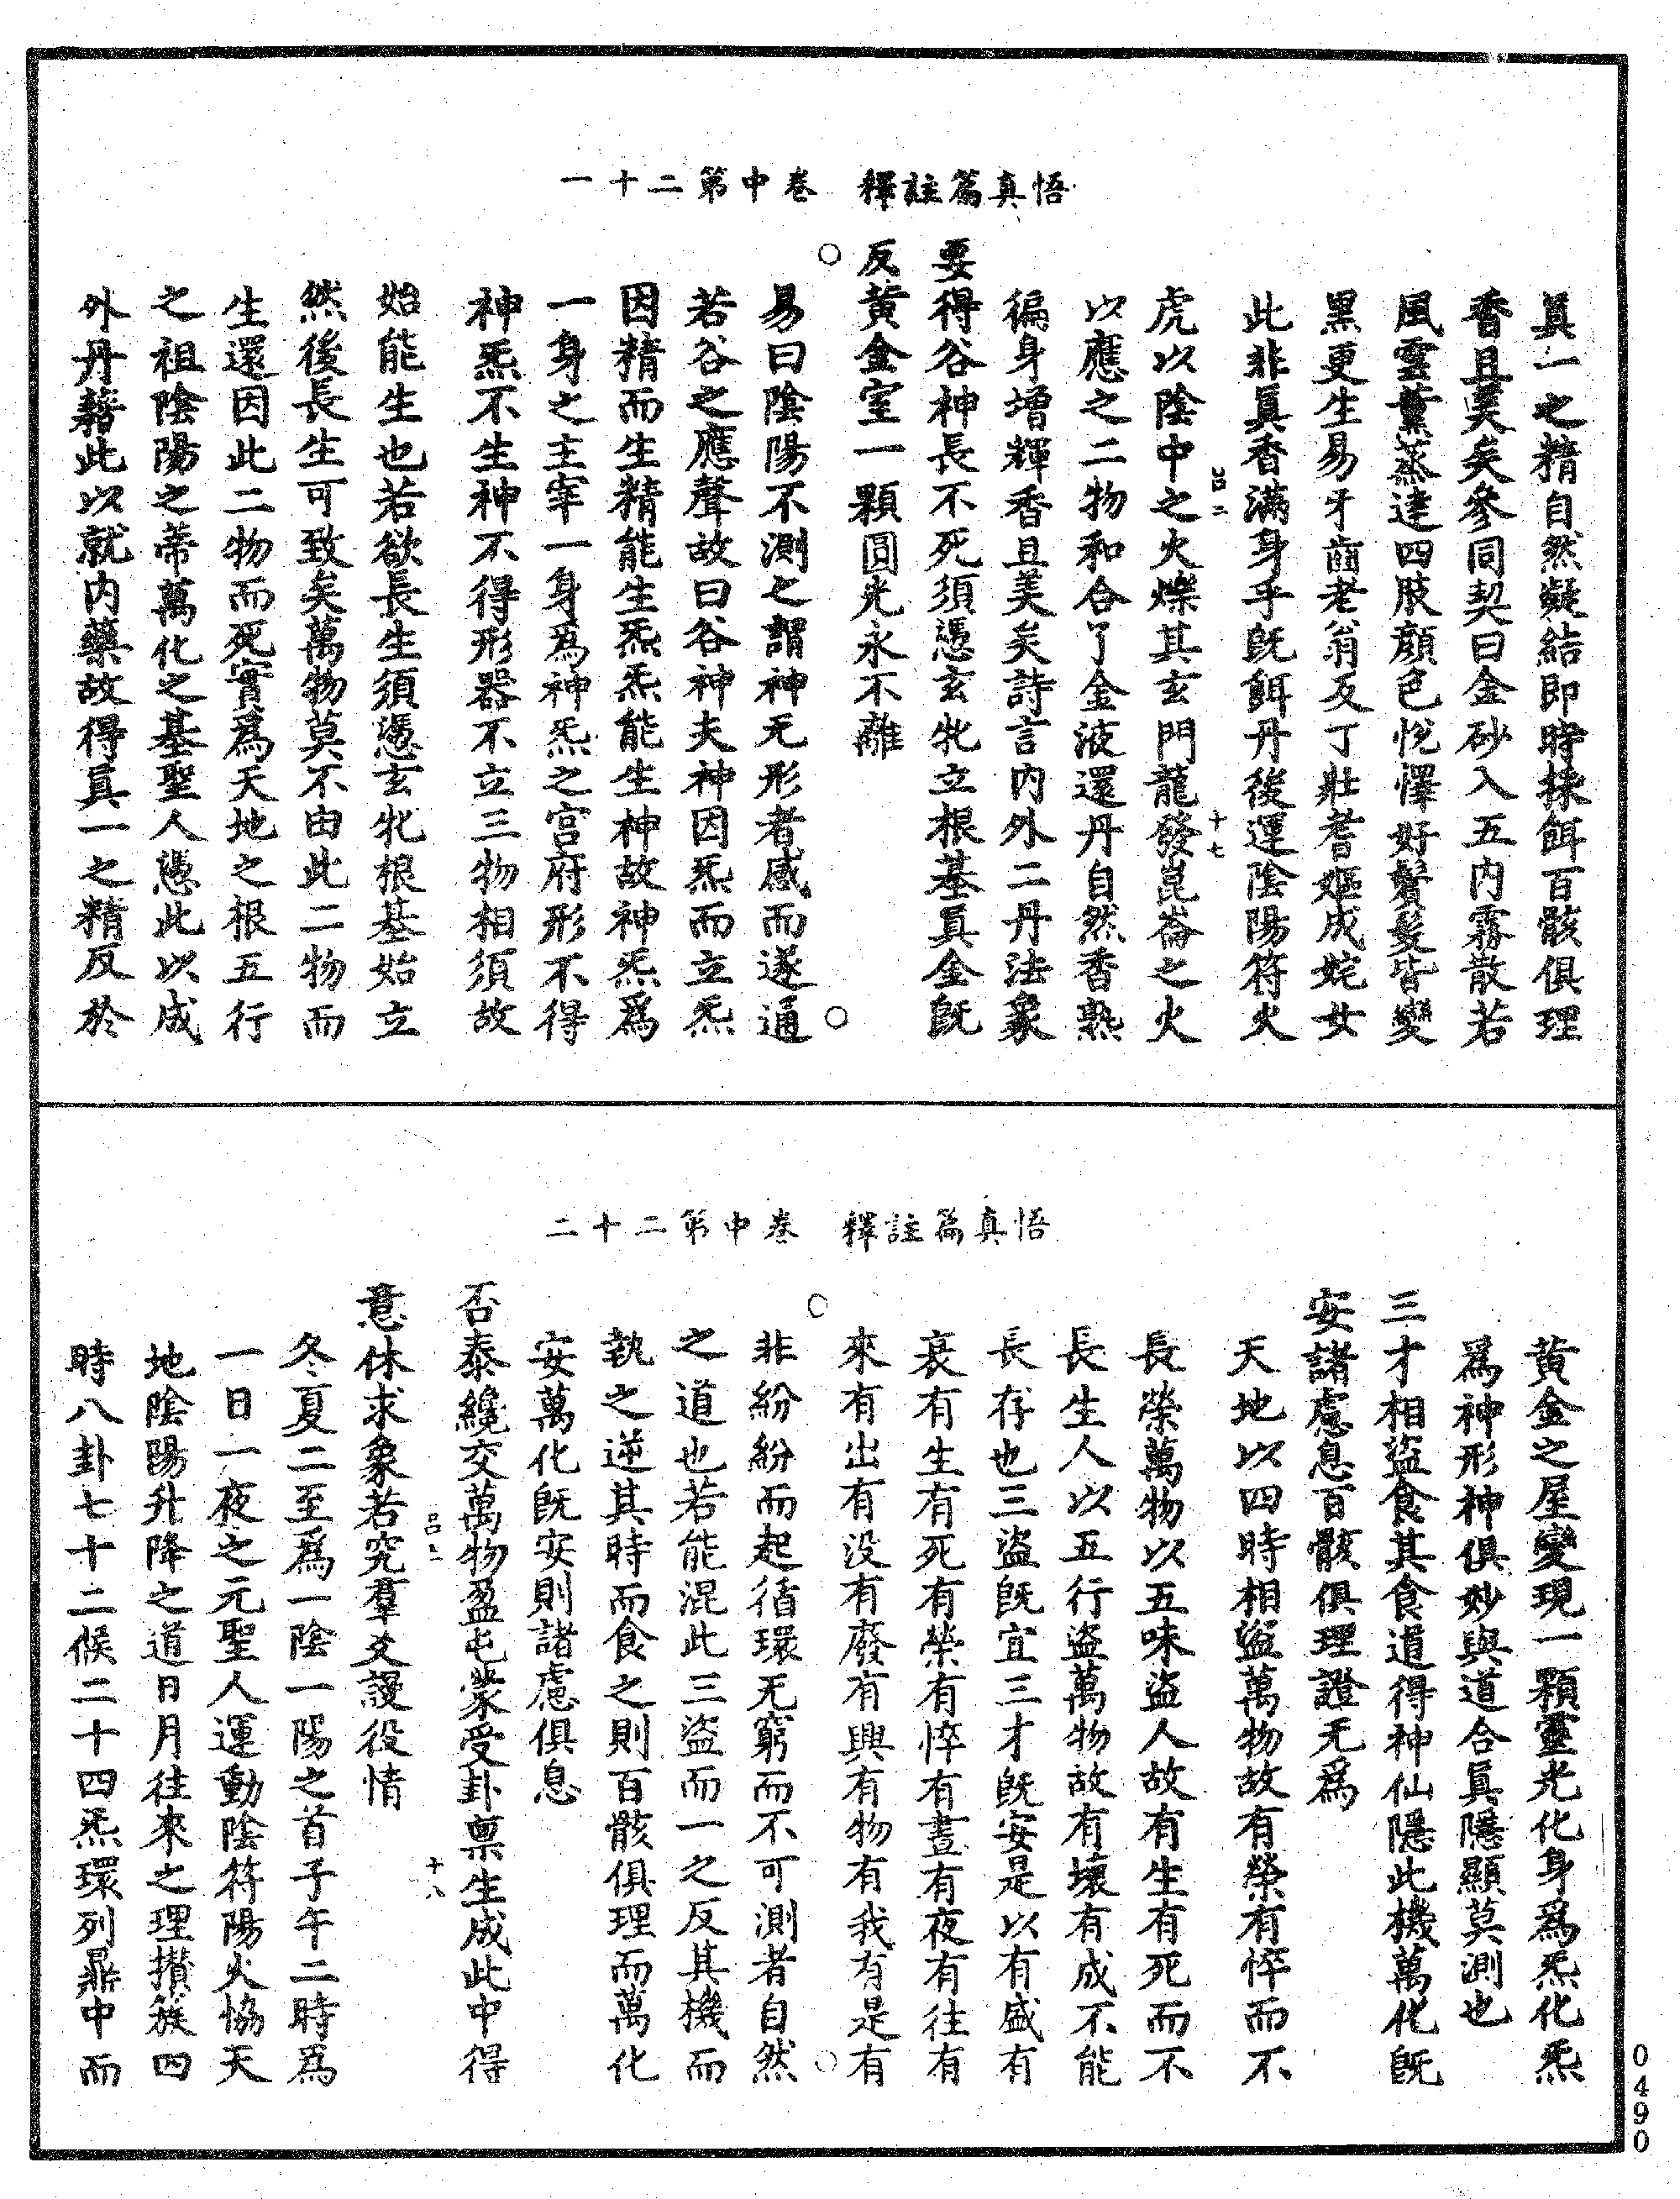 悟真篇註釋　卷中第二十一
真一之精自然凝結即時採餌百骸俱理
香且美矣參同契曰金砂入五內霧散若
風雲薰蒸達四肢顏色悅懌好鬢髮皆變
黑更生易牙齒老翁反丁壯耆嫗成姹女
此非真香滿身乎既餌丹後運陰陽符火
虎以陰中之火爍其玄門龍發崑崙之火
以應之二物和合了金液還丹自然香熟
徧身增輝香且美矣詩言內外二丹法象
要得谷神長不死須憑玄牝立根基真金既
反黃金室一顆圓光永不離
易曰陰陽不測之謂神无形者感而遂通
若谷之應聲故曰谷神夫神因炁而立炁
因精而生精能生炁炁能生神故神炁為
一身之主宰一身為神炁之宮府形不得
神炁不生神不得形器不立三物相須故
始能生也若欲長生須憑玄牝根基始立
然後長生可致矣萬物莫不由此二物而
生還因此二物而死實為天地之根五行
之祖陰陽之蒂萬化之基聖人憑此以成
外丹藉此以就內藥故得真一之精反於
悟真篇註釋　卷中第二十二
黃金之屋變現一顆靈光化身為炁化炁
為神形神俱妙與道合真隱顯莫測也
三才相盜食其食道得神仙隱此機萬化既
安諸慮息百骸俱理證无為
天地以四時相盜萬物故有榮有悴而不
長榮萬物以五味盜人故有生有死而不
長生人以五行盜萬物故有壞有成不能
長存也三盜既宜三才既安是以有盛有
衰有生有死有榮有悴有晝有夜有往有
來有出有没有廢有興有物有我有是有
非紛紛而起循環无窮而不可測者自然
之道也若能混此三盜而一之反其機而
執之逆其時而食之則百骸俱理而萬化
安萬化既安則諸慮俱息
否泰纔交萬物盈屯蒙受卦禀生成此中得
意休求象若究羣爻謾役情
冬夏二至為一陰一陽之首子午二時為
一日一夜之元聖人運動陰符陽火恊天
地陰陽升降之道日月往來之理攢簇四
時八卦七十二候二十四炁環列鼎中而
呂二
十七
呂二
十八
0490